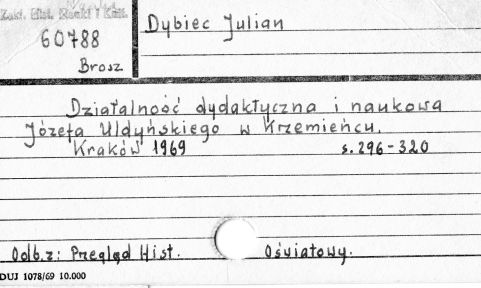 Zakł. Hist. Nauki i Tech.
60788
Brosz
Dybiec Julian
Działalność dydaktyczna i naukowa
Józefa Uldyńskiego w Krzemieńcu.
Kraków 1969 s. 296-320
Odb. z: Przegląd Hist. Oświatowy.
DUJ 1078/69 10.000